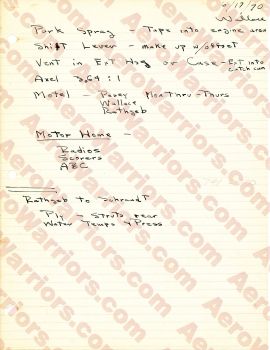 6/19/70
Wallace
Pork Spray - Taps into engine area
Shift Lever - make up w/offset
Vent in Ext Hsg or Case - Ext into
catch can
Axel 2.64:1
Motel - Pasey Mon Thru - Thurs
Wallace
Rathgeb
Motor Home -
Radios
Scorers
ABC
Rathgeb to Schrandt
Ply - Struts rear
Water Temps & Press
AeroWarriors.com